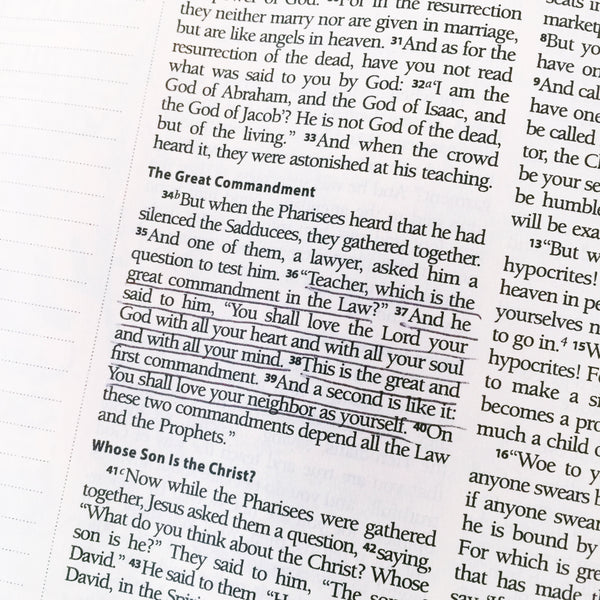 power of God. For in the resurrection
they neither marry nor are given in marriage,
but are like angels in heaven. 31And as for the
resurrection of the dead, have you not read
what was said to you by God: 32a‘I am the
God of Abraham, and the God of Isaac, and
the God of Jacob’? He is not God of the dead,
but of the living.” 33And when the crowd
heard it, they were astonished at his teaching.
The Great Commandment
34bBut when the Pharisees heard that he had
silenced the Sadducees, they gathered together.
35And one of them, a lawyer, asked him a
question to test him. 36“Teacher, which is the
great commandment in the Law?” 37And he
said to him, “You shall love the Lord your
God with all your heart and with all your soul
and with all your mind. 38This is the great and
first commandment. 39And a second is like it:
You shall love your neighbor as yourself. 40On
these two commandments depend all the Law
and the Prophets.”
Whose Son Is the Christ?
41cNow while the Pharisees were gathered
together, Jesus asked them a question, 42saying,
“What do you think about the Christ? Whose
son is he?” They said to him, “The son
David.” 43He said to them, “H
David, in the Spirit
seats in
marketp
8But yo
have on
9And cal
have one
be called
tor, the C
be your se
be humble
will be exa
13“But w
hypocrites!
heaven in pe
yourselves n
to go in.4 15W
hypocrites! F
to make a si
becomes a pro
much a child o
16“Woe to y
anyone swears b
if anyone swear
he is bound by
For which is gre
that has made th
say, ‘If